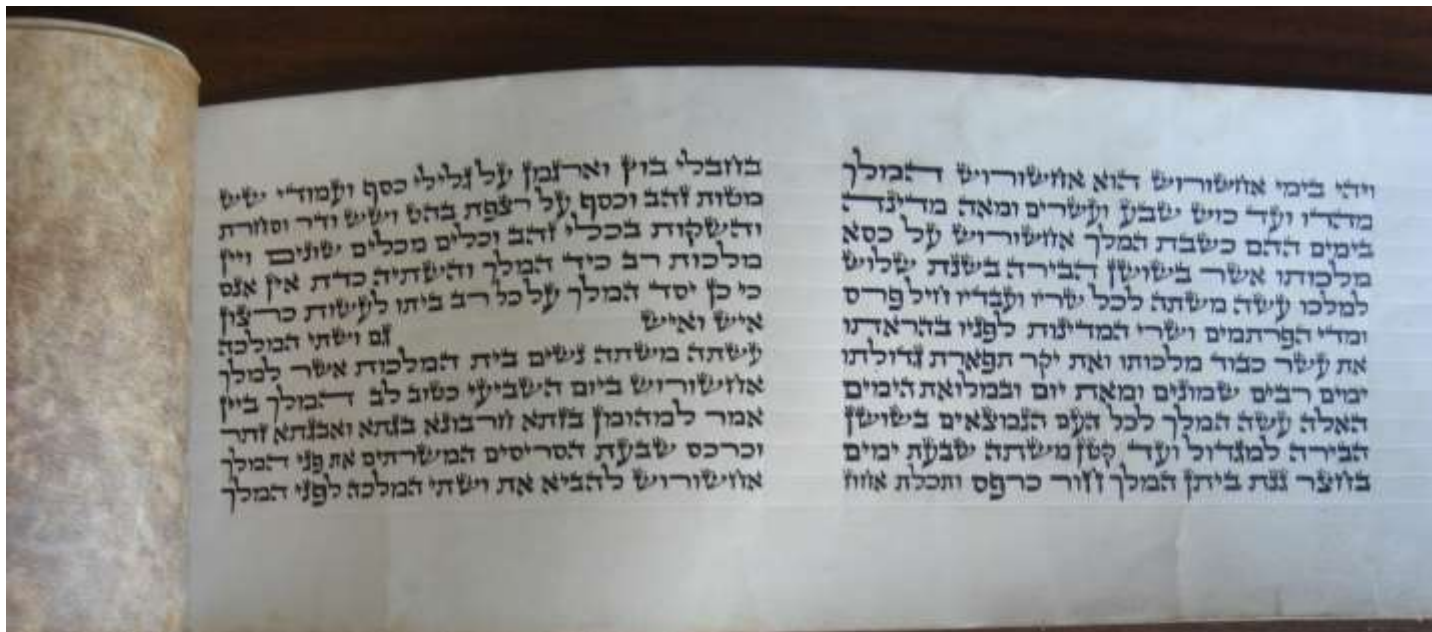 ויהי בימי אחשורוש הוא אחשורוש המולך
מהדו ועד כוש שבע ועשרים ומאה מדינה
בימים ההם כשבת המלך אחשורוש על כסא
מלכותו אשר בשושן הבירה בשנת שלוש
למלכו עשה משתה לכל שריו ועבדיו חיל פרס
ומדי הפרתמים ושרי המדינות לפניו בהראתו
את עשר כבוד מלכותו ואת יקר תפארת גדולתו
ימים רבים שמונים ומאת יום ובמלואת הימים
האלה עשה המלך לכל העם הנמצאים בשושן
הבירה למגדול ועד קטן משתה שבעת ימים
בחצר גנת ביתן המלך חור כרפס ותכלת אחוז
בחבלי בוץ וארגמן על גלילי כסף ועמודי שש
מטות זהב וכסף על רצפת בהט ושש ודר וסחרת
והשקות בכלי זהב וכלים מכלים שונים ויין
מלכות רב כיד המלך והשתיה כדת אין אנס
כי כן יסד המלך על כל רב ביתו לעשות כרצון
איש ואיש גם ושתי המלכה
עשתה משתה נשים בית המלכות אשר למלך
אחשורוש ביום השביעי כטוב לב המלך ביין
אמר למהומן בזתא חרבונא בגתא ואבגתא זתר
וכרכס שבעת הסריסים המשרתים את פני המלך
אחשורוש להביא את ושתי המלכה לפני המלך